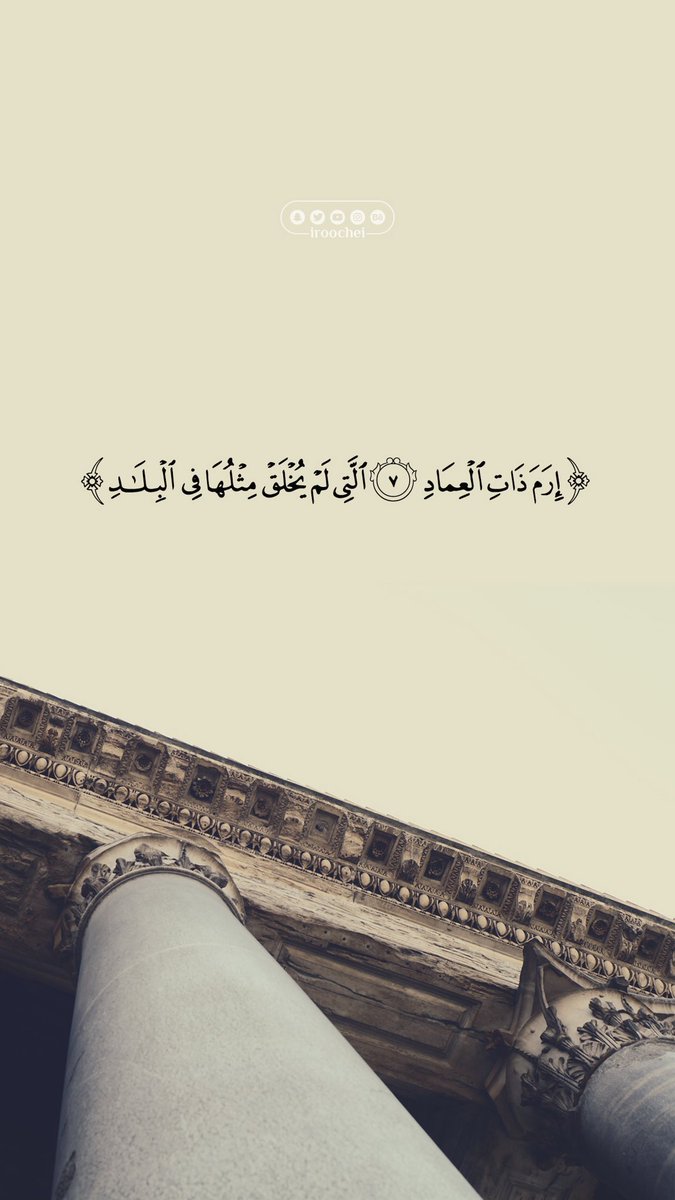 iroochei
﴿ إِرَمَ ذَاتِ ٱلۡعِمَادِ ٧ ٱلَّتِى لَمۡ يُخۡلَقۡ مِثۡلُهَا فِى ٱلۡبِلَـٰدِ ﴾